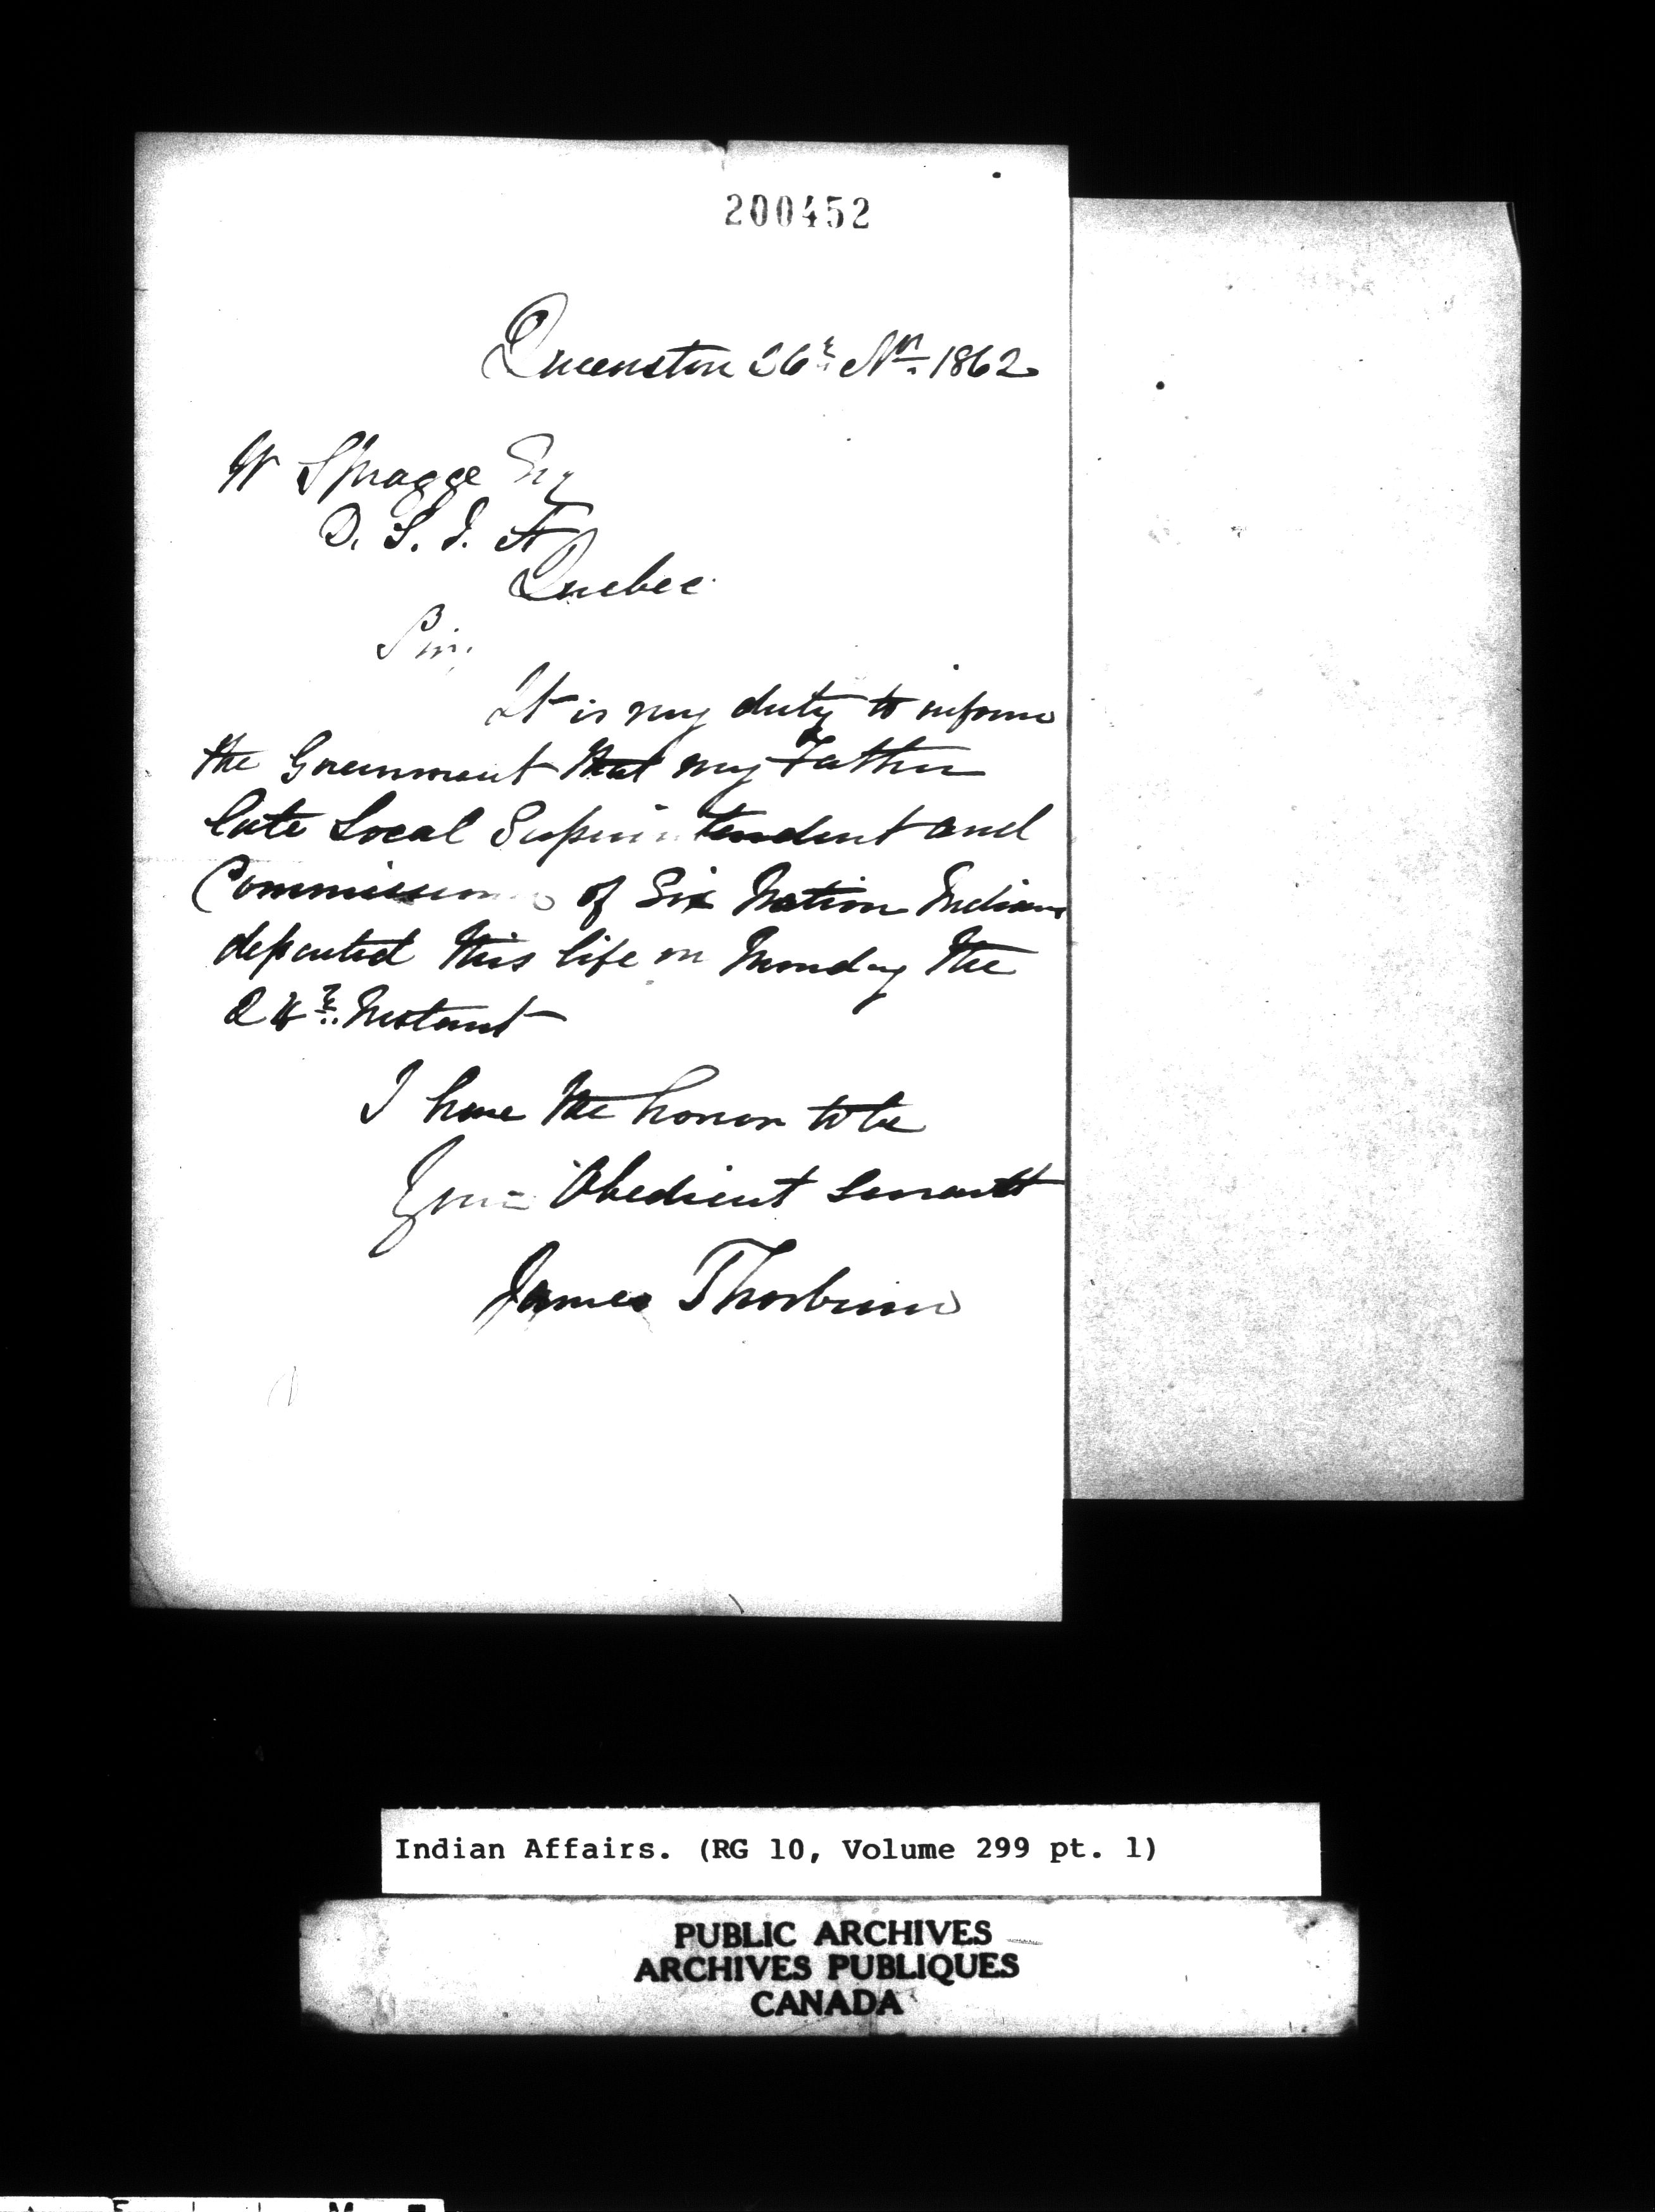 200452
Queenston 26th Nov. 1862
W Spragge Esq
D. S. I. A
Quebec
Sir,
It is my duty to inform
the Government that my Father
late Local Superintendent and
Commissioner of Six Nation Indians
departed this life on Monday the
24th Instant
I have the honor to be
Your Obedient Servant
James Thorburn
Indian Affairs. (RG 10, Volume 299 pt. 1)
PUBLIC ARCHIVES
ARCHIVES PUBLIQUES
CANADA